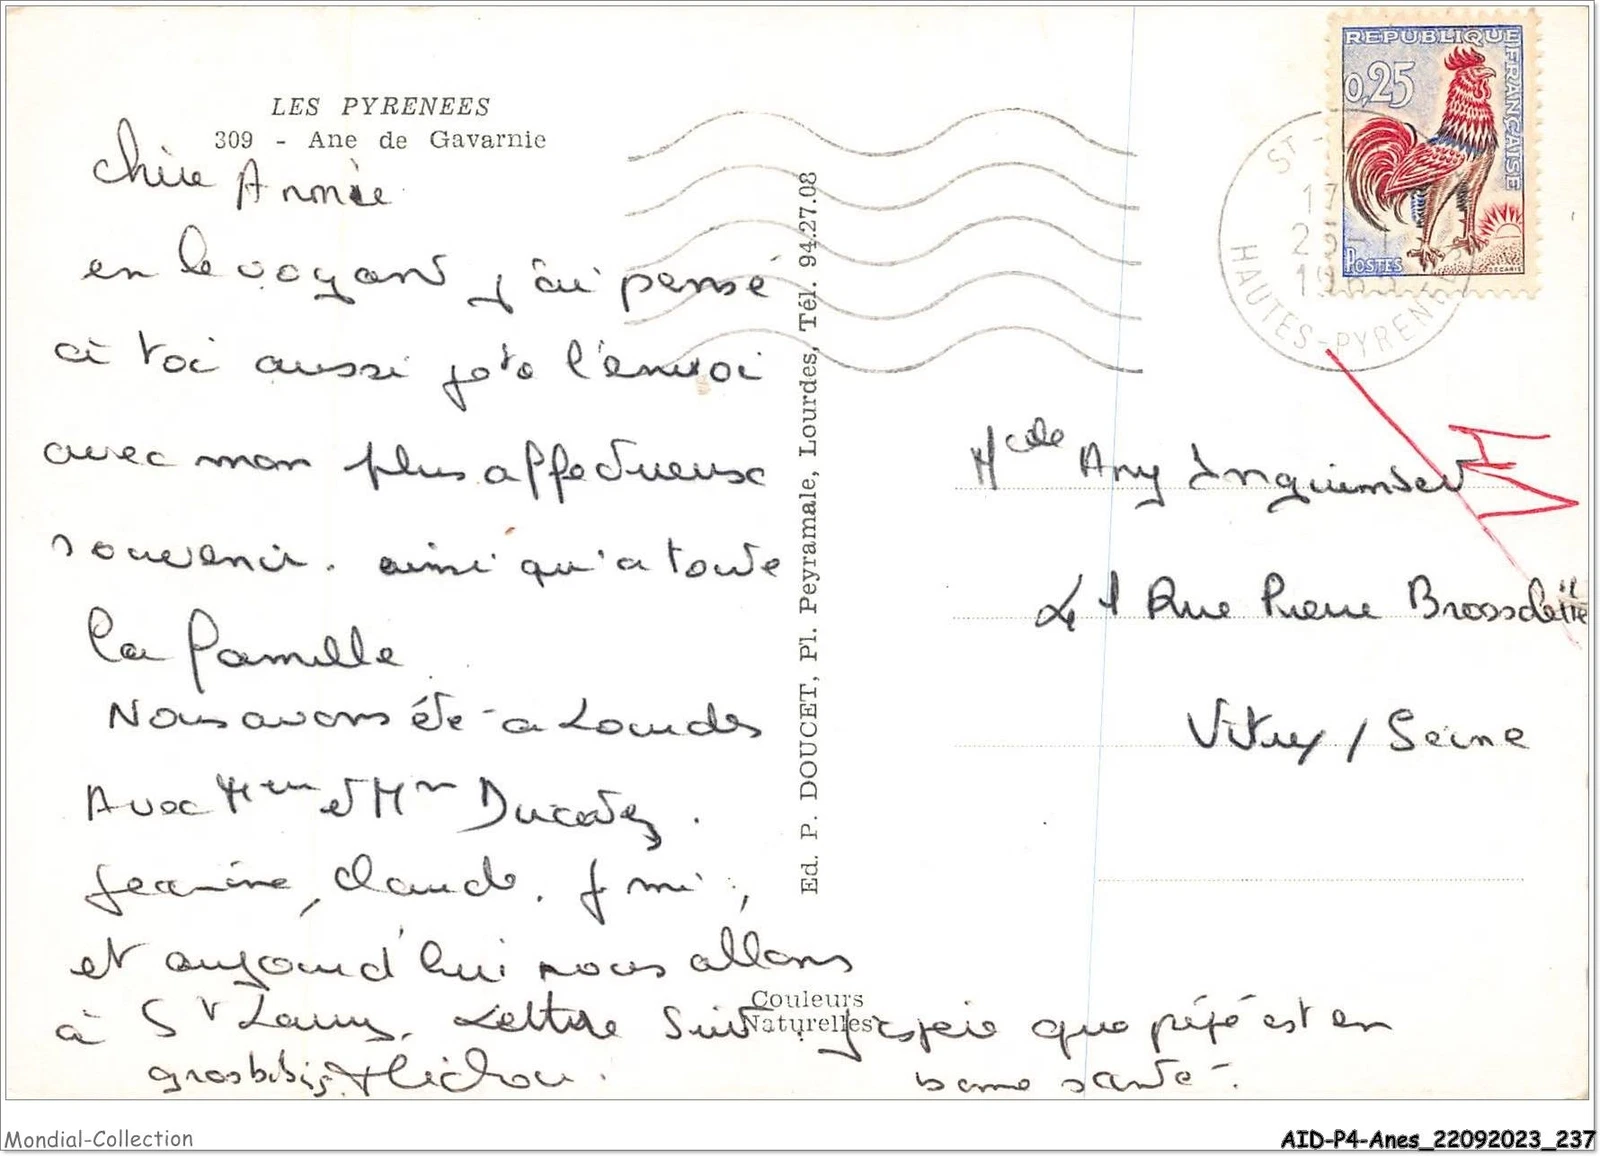 LES PYRENEES
309 - Ane de Gavarnie
chère
en le voyant j'ai pensé
à toi aussi je te l'envoi
avec mon plus affectueux
souvenir. ainsi qu'a toute
la famille
Nous avons été a Lourdes
Avec Mme et Mr
Jeanine, Claude,
et aujourd'hui nous allons
à St Lary. Lettre Suit. J'espeie que pépé est en
bonne santé.
Couleurs
Naturelles
Ed. P. DOUCET, Pl. Peyramale, Lourdes, Tél. 94.27.08
REPUBLIQUE FRANÇAISE
0,25
POSTES
DECARIS
ST -
17
HAUTES-PYRENEES
Melle Any
41 Rue Pierre Brossolette
Vitry / Seine
Mondial-Collection
AID-P4-Anes_22092023_237